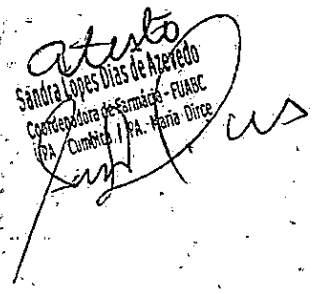 atesto
Sandra Lopes Dias de Azevedo
Coordenadora de Farmácia - FUABC
UPA Cumbica / PA. Maria Dirce